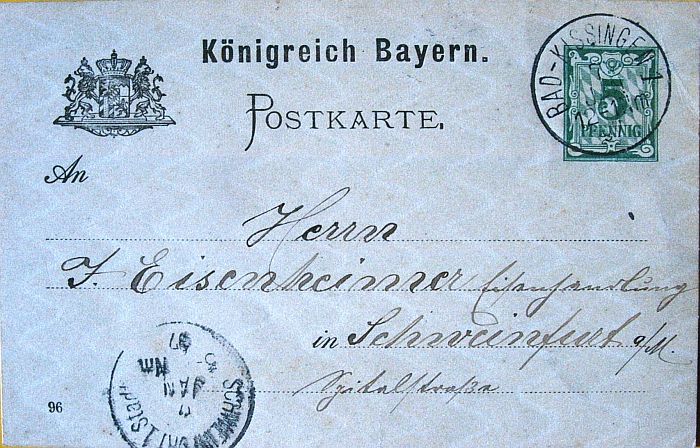 Königreich Bayern.
POSTKARTE.
BAD-KISSINGEN 1
5
PFENNIG
An
Herrn
J. Eisenheimer Eisenhandlung
in Schweinfurt a/M.
Spitalstraße
JAN
Nm
97
96